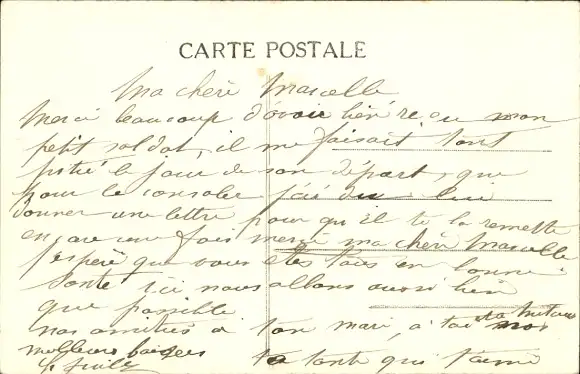 CARTE POSTALE
Ma chère Marcelle
Merci beaucoup d'avoir bien reçu mon
petit soldat, il me faisait tant
pitié le jour de son départ, que
pour le consoler j'ai du lui
donner une lettre pour qu'il te la remette
encore une fois merci ma chère Marcelle
J'espère que vous êtes tous en bonne
santé ici nous allons aussi bien
que possible
nos amitiés à ton mari, à toi
meilleurs baisers
ta tante qui t'aime